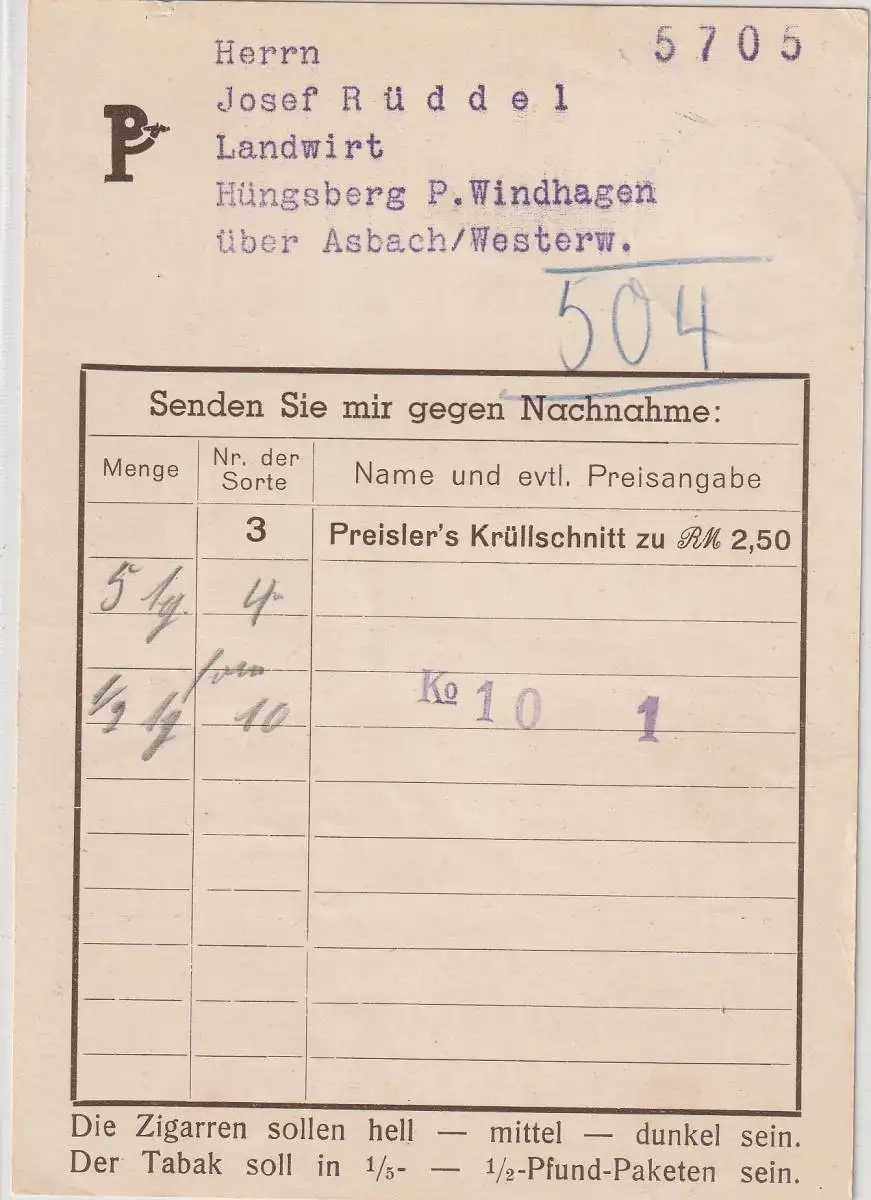 5705
Herrn
Josef R ü d d e l
Landwirt
Hüngsberg P.Windhagen
über Asbach/Westerw.
P
504
Senden Sie mir gegen Nachnahme:
Menge Nr. der Sorte Name und evtl. Preisangabe
3 Preisler's Krüllschnitt zu RM 2,50
5 4
1/2 10 Ko 10 1
Die Zigarren sollen hell — mittel — dunkel sein.
Der Tabak soll in 1/5- — 1/2-Pfund-Paketen sein.